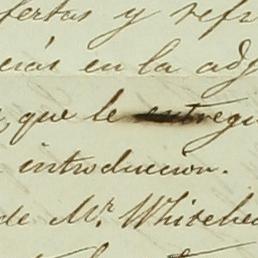 fertas y refr
cias en la adj
que le entregu
introduccion.
de Mr. Whitehe